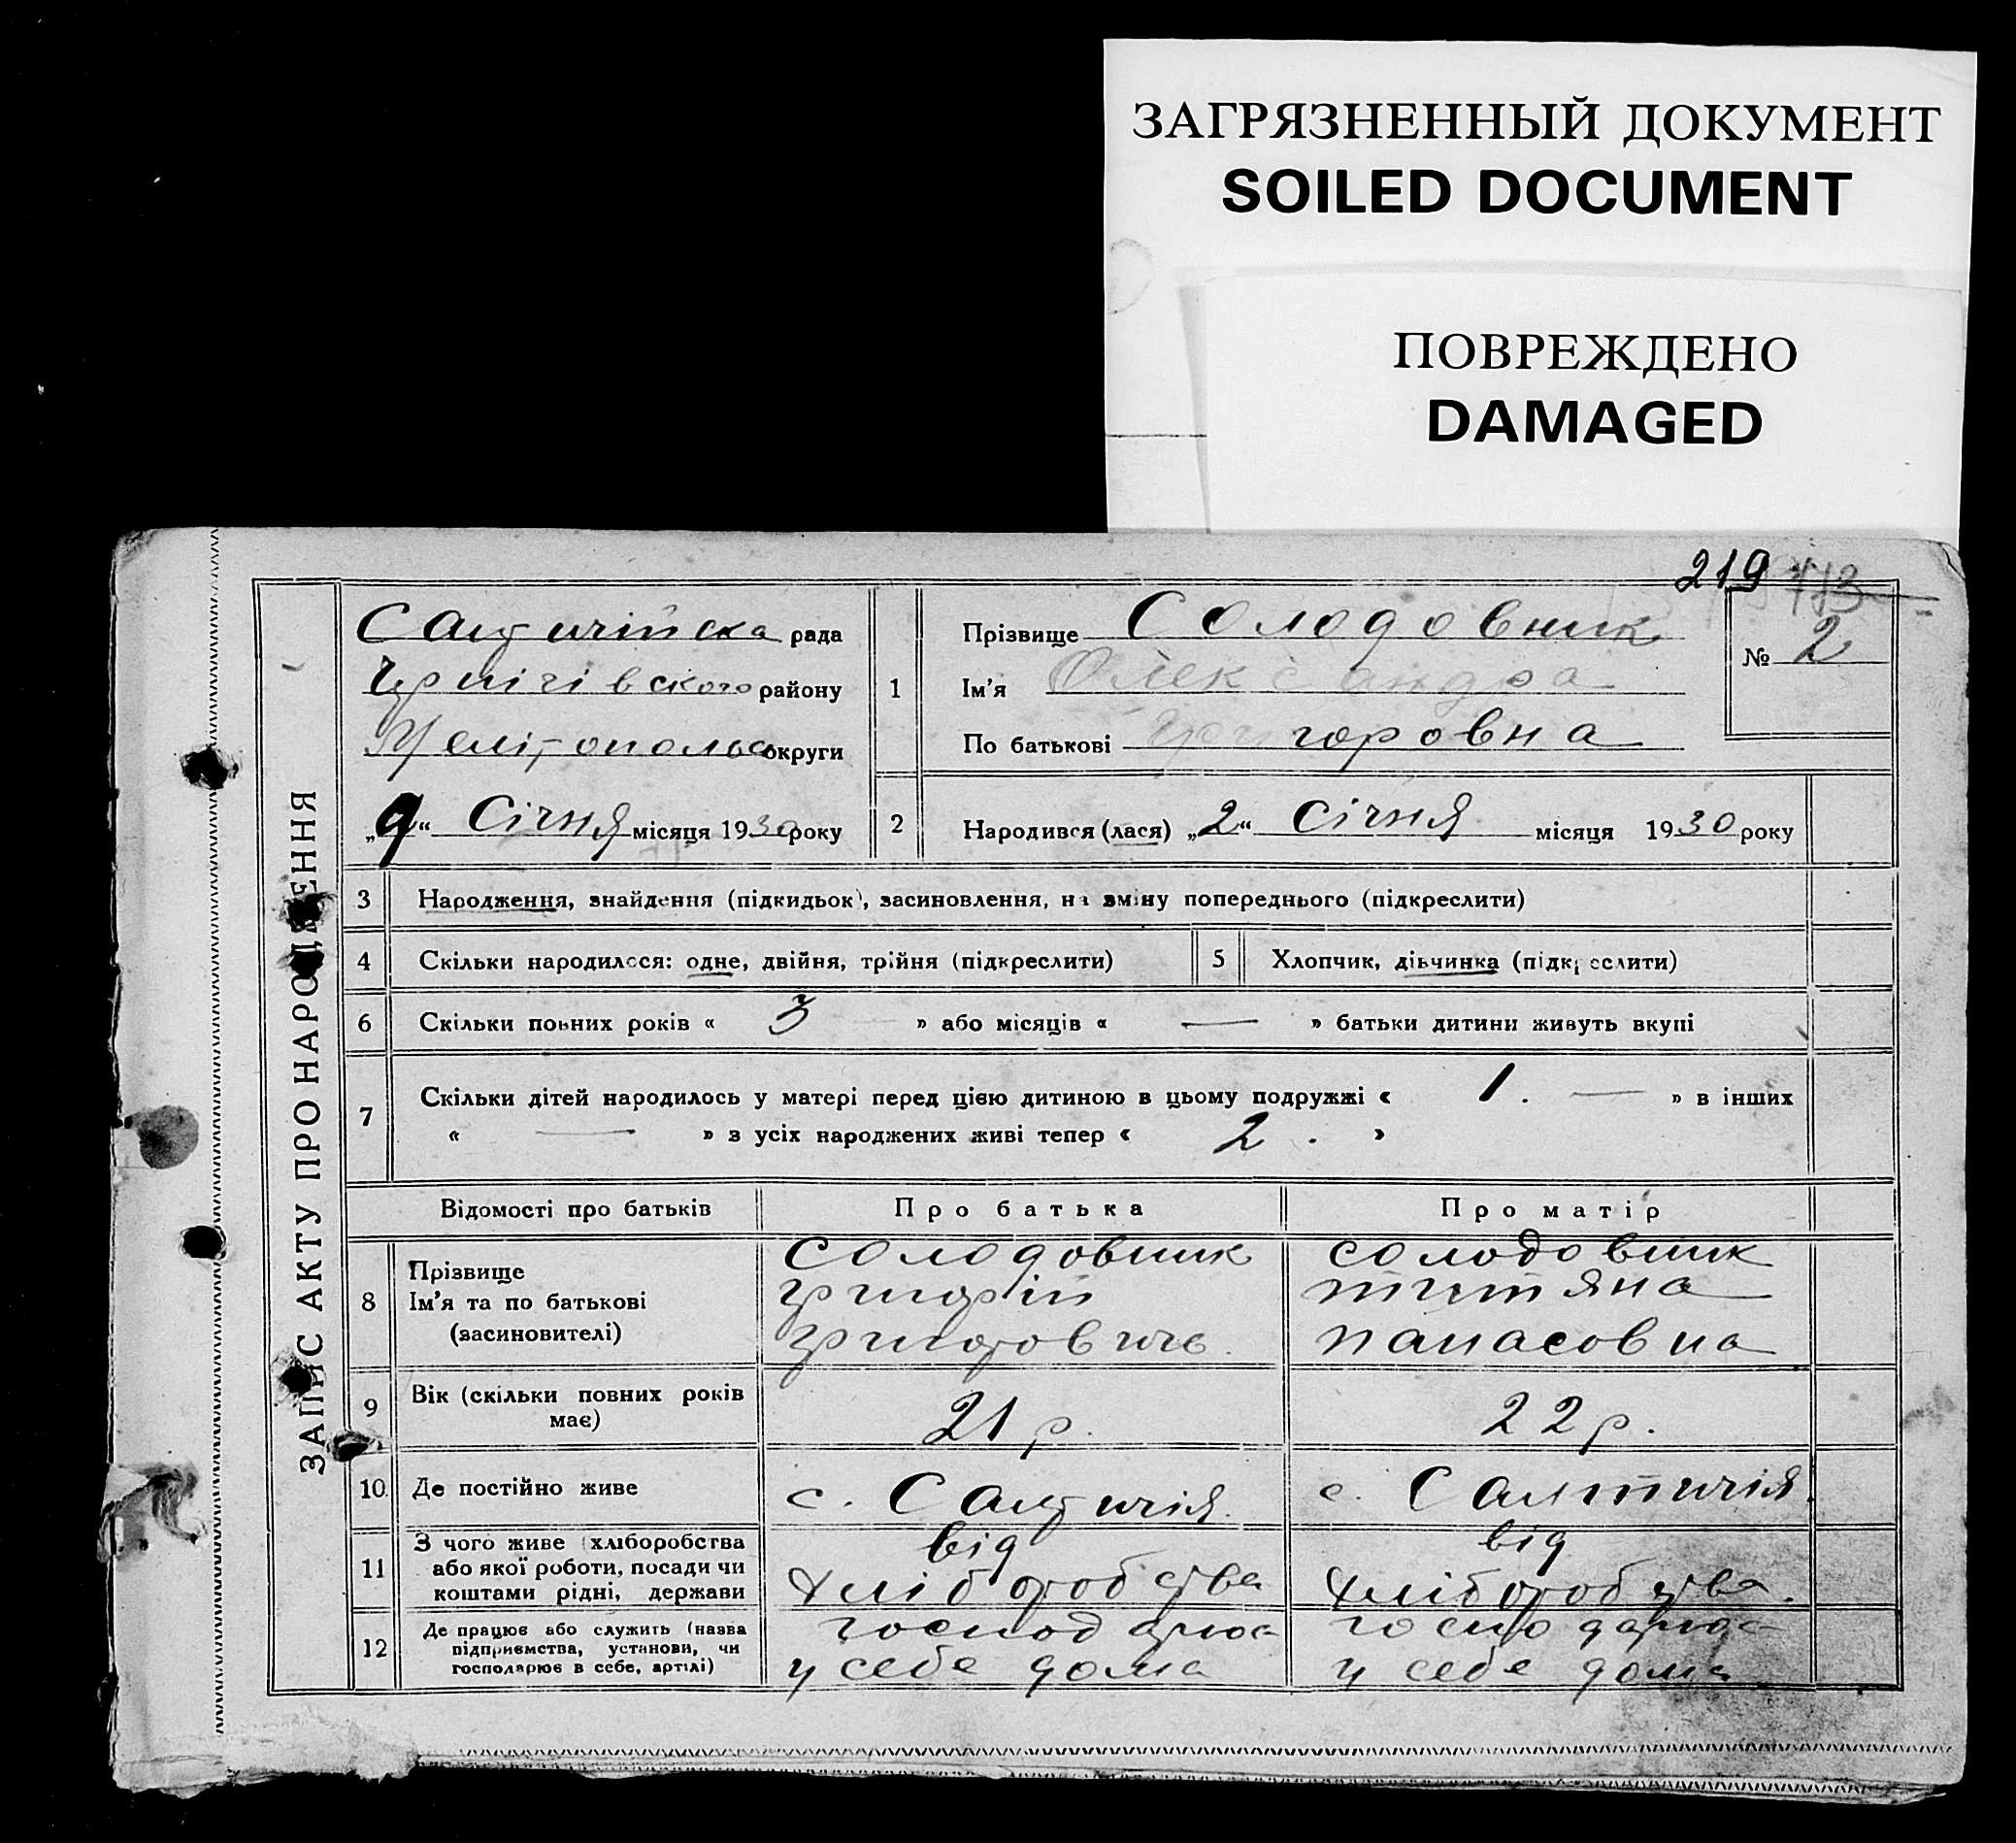 ЗАГРЯЗНЕННЫЙ ДОКУМЕНТ
SOILED DOCUMENT
ПОВРЕЖДЕНО
DAMAGED
219
ЗАПИС АКТУ ПРО НАРОДЖЕННЯ
Салтичійска рада
району
Мелітопольс округи
„9“ Січня місяця 1930 року
1
Прізвище Солодовник
Ім'я Олександра
По батькові Григоровна
№ 2
2
Народився (лася) „2“ Січня місяця 1930 року
3 Народження, знайдення (підкидьок), засиновлення, на зміну попереднього (підкреслити)
4 Скільки народилося: одне, двійня, трійня (підкреслити)
5 Хлопчик, дівчинка (підкреслити)
6 Скільки повних років « 3 » або місяців « — » батьки дитини живуть вкупі
7 Скільки дітей народилось у матері перед цією дитиною в цьому подружжі « 1. — » в інших
« — » з усіх народжених живі тепер « 2 . »
Відомості про батьків Про батька Про матір
8 Прізвище
Ім'я та по батькові
(засиновителі)
Солодовник
Григорій
Солодовник
титяна
панасовна
9 Вік (скільки повних років
має)
21 р.
22 р.
10. Де постійно живе
с. Салтичія.
с. Салтичія.
11 З чого живе (хліборобства
або якої роботи, посади чи
коштами рідні, держави
від
хліборобства
від
хліборобства.
12 Де працює або служить (назва
підприємства, установи, чи
господарює в себе, артілі)
господарює
у себе дома
господарює
у себе дома